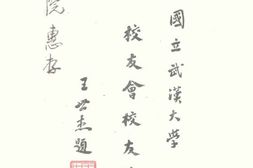 國立武漢大學
校友會校友
王世杰題
院惠存